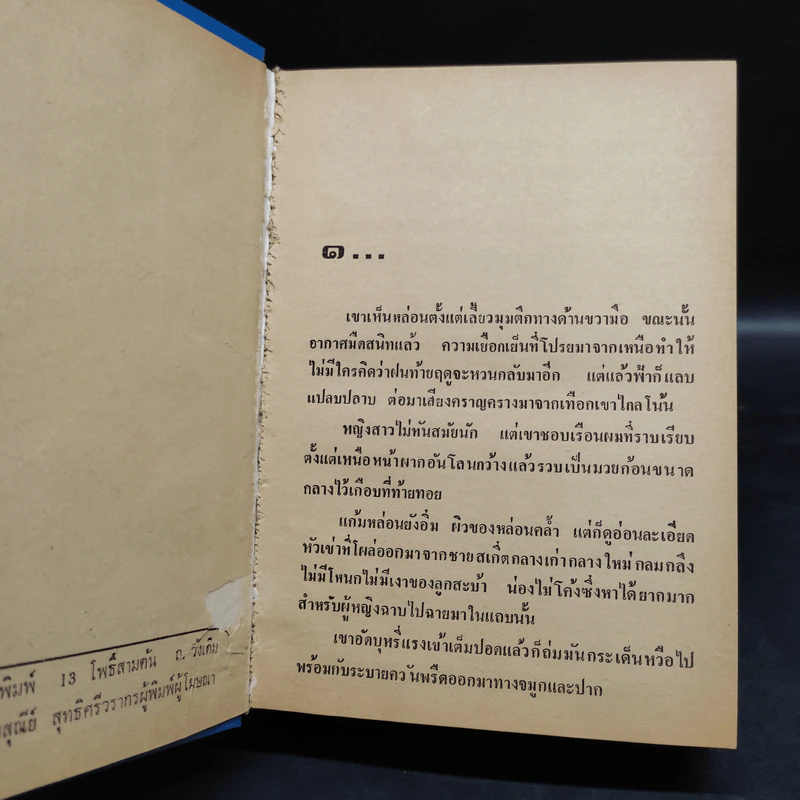 พิมพ์ 13 โพธิ์สามต้น ถ. วังเดิม
สุณีย์ สุทธิศรีวรากรผู้พิมพ์ผู้โฆษณา
๑...
เขาเห็นหล่อนตั้งแต่เลี้ยวมุมตึกทางด้านขวามือ ขณะนั้น
อากาศมืดสนิทแล้ว ความเยือกเย็นที่โปรยมาจากเหนือทำให้
ไม่มีใครคิดว่าฝนท้ายฤดูจะหวนกลับมาอีก แต่แล้วฟ้าก็แลบ
แปลบปลาบ ต่อมาเสียงคราญครางมาจากเทือกเขาไกลโน้น
หญิงสาวไม่ทันสมัยนัก แต่เขาชอบเรือนผมที่ราบเรียบ
ตั้งแต่เหนือหน้าผากอันโลนกว้างแล้วรวบเป็นมวยก้อนขนาด
กลางไว้เกือบที่ท้ายทอย
แก้มหล่อนยังอิ่ม ผิวของหล่อนคล้ำ แต่ก็ดูอ่อนละเอียด
หัวเข่าที่โผล่ออกมาจากชายสเกิ๊ตกลางเก่ากลางใหม่กลมกลึง
ไม่มีโหนกไม่มีเงาของลูกสะบ้า น่องไม่โค้งซึ่งหาได้ยากมาก
สำหรับผู้หญิงฉาบไปฉายมาในแถบนั้น
เขาอัดบุหรี่แรงเข้าเต็มปอดแล้วก็ถ่มมันกระเด็นหวือไป
พร้อมกับระบายควันพรืดออกมาทางจมูกและปาก